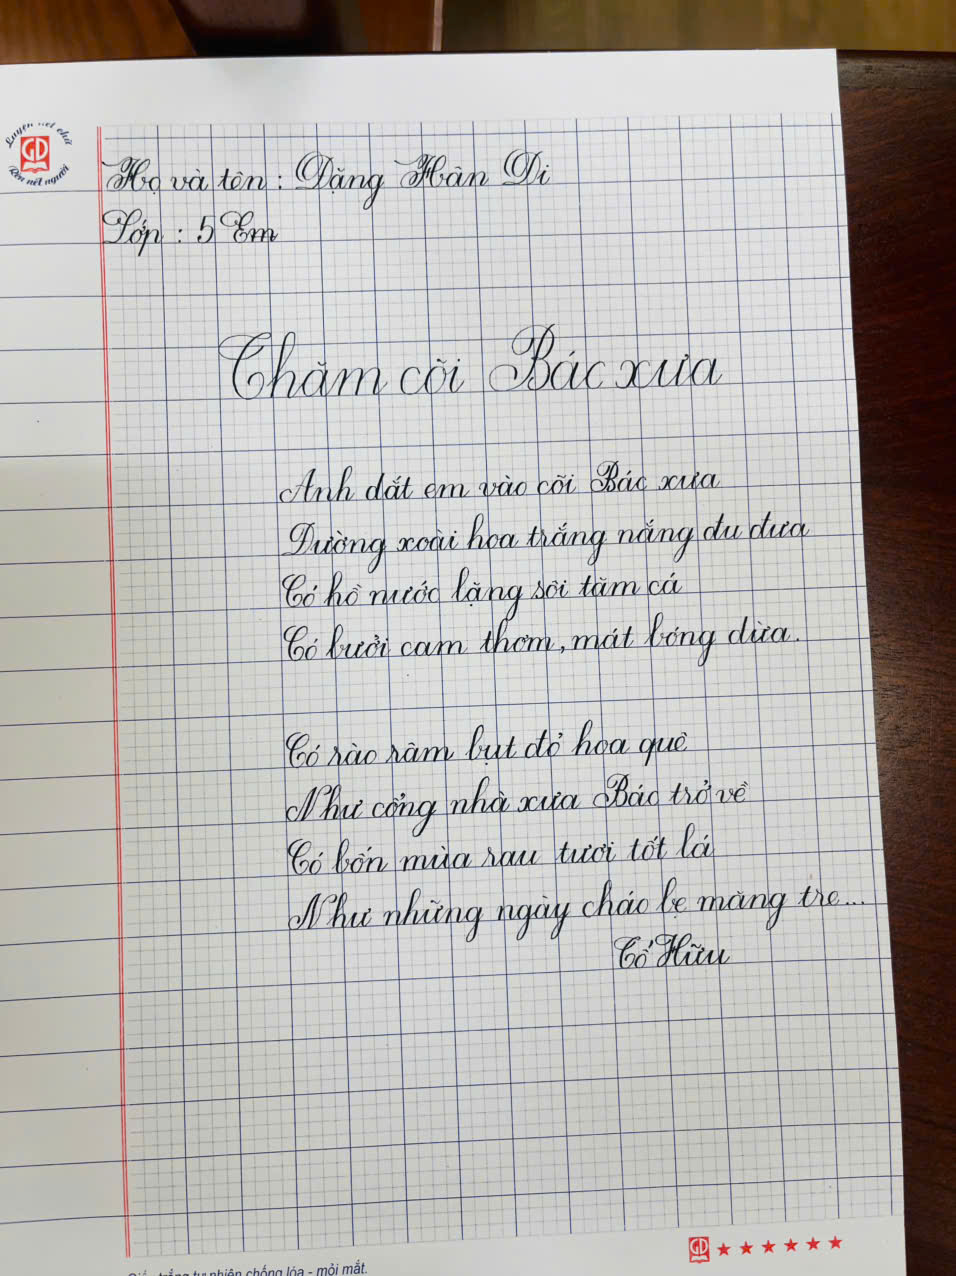 Luyện nét chữ
GD
Rèn nết người
Họ và tên : Đặng Hân Di
Lớp : 5 Em
Thăm cõi Bác xưa
Anh dắt em vào cõi Bác xưa
Đường xoài hoa trắng nắng đu đưa
Có hồ nước lặng sôi tăm cá
Có bưởi cam thơm, mát bóng dừa.
Có rào râm bụt đỏ hoa quê
Như cổng nhà xưa Bác trở về
Có bốn mùa rau tươi tốt lá
Như những ngày cháo bẹ măng tre...
Tố Hữu
GD
trắng tự nhiên chống lóa - mỏi mắt.